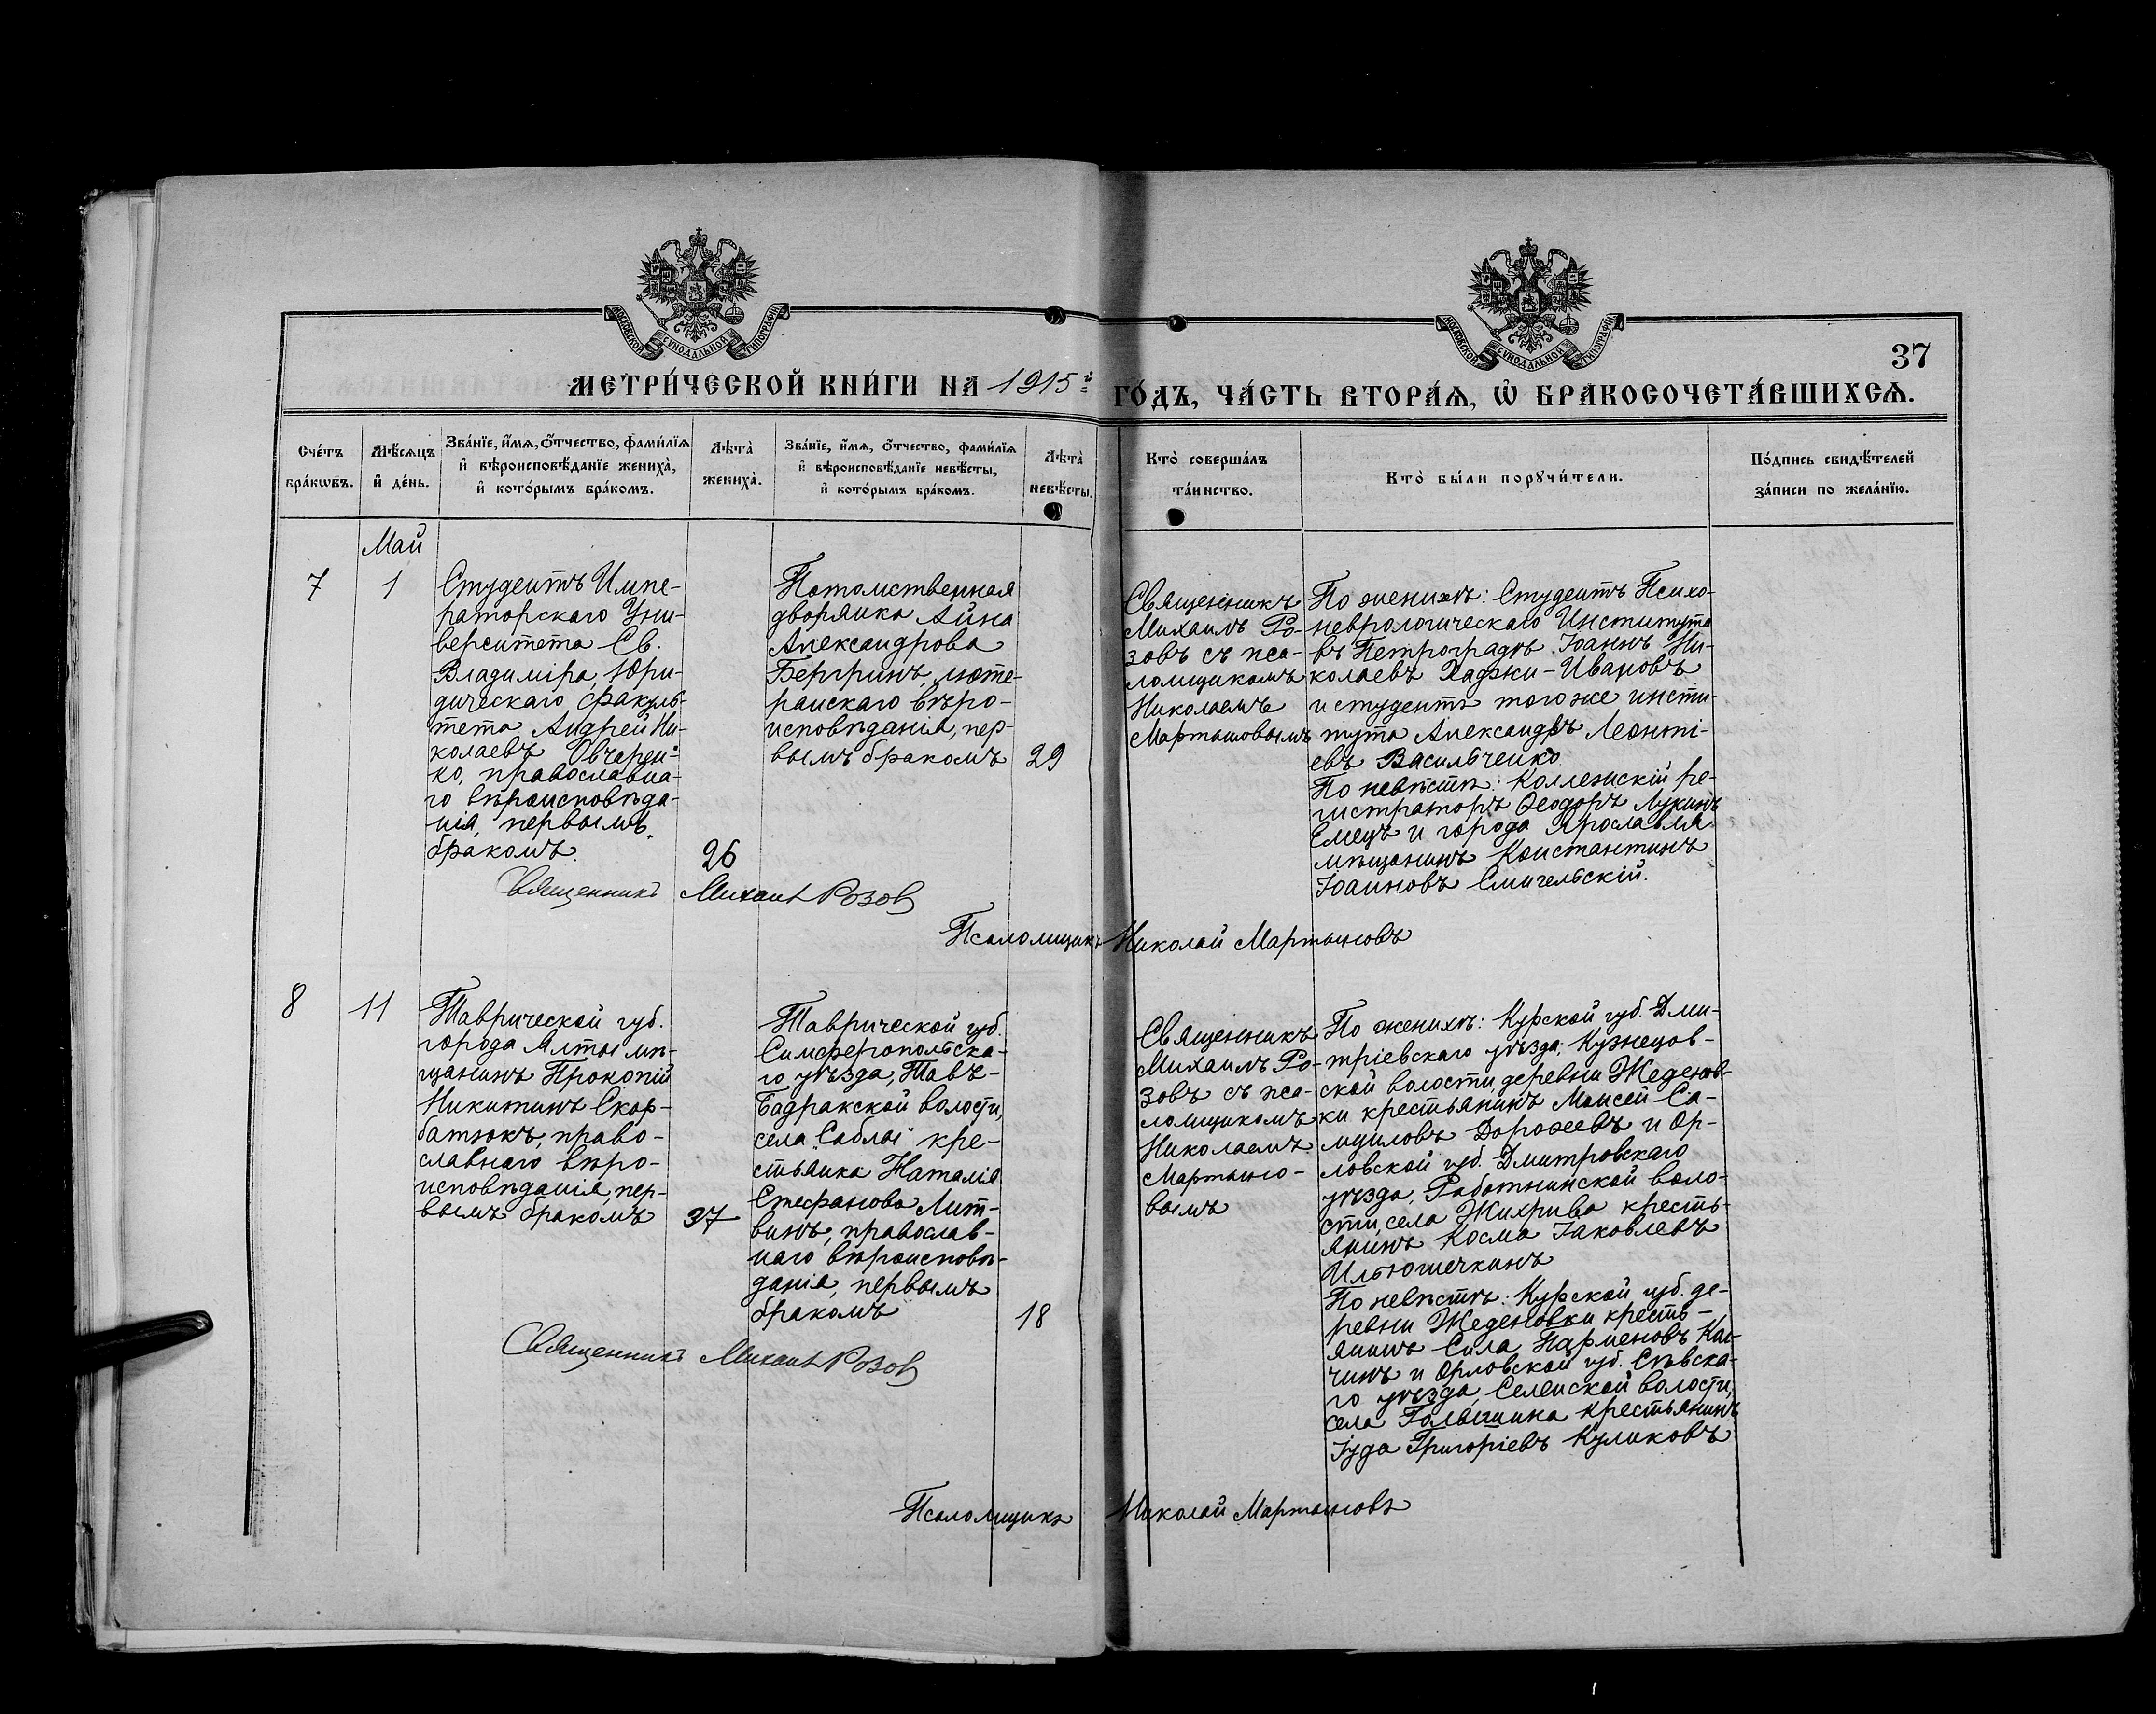 МОСКОВСКОЙ СУНОДАЛЬНОЙ ТИПОГРАФІИ
МОСКОВСКОЙ СУНОДАЛЬНОЙ ТИПОГРАФІИ
37
МЕТРИ́ЧЕСКОЙ КНИ́ГИ НА 1915й ГО́ДЪ, ЧА́СТЬ ВТОРА́Ѧ, Ѽ БРАКОСОЧЕТА́ВШИХСѦ.
Сче́тъ
бра́кѡвъ.
Мѣ́сѧцъ
и҆ де́нь.
Зва́нїе, и҆́мѧ, ѻ҆́тчество, фами́лїѧ
и҆ вѣроисповѣ́данїе жениха̀,
и҆ кото́рымъ бра́комъ.
Лѣта̀
жениха̀.
Зва́нїе, и҆́мѧ, ѻ҆́тчество, фами́лїѧ
и҆ вѣроисповѣ́данїе невѣ́сты,
и҆ кото́рымъ бра́комъ.
Лѣта̀
невѣ́сты.
Кто̀ соверша́лъ
та́инство.
Кто̀ бы́ли порꙋчи́тели.
По́дпись свидѣ́телей
за́писи по жела́нїю.
Май
7
1
Студентъ Импе-
раторскаго Уни-
верситета Св.
Владиміра, Юри-
дическаго факуль-
тета Андрей Ни-
колаевъ Овчарен-
ко, православна-
го вѣроисповѣда-
нія, первымъ
бракомъ.
26
Потомственная
дворянка Айна
Александрова
Бергринъ, люте-
ранскаго вѣро-
исповѣданія, пер-
вымъ бракомъ
29
Священникъ
Михаилъ Ро-
зовъ съ пса-
ломщикомъ
Николаемъ
Мартыновымъ
По женихѣ: Студентъ Психо-
неврологическаго Института
въ Петроградѣ Іоаннъ Ни-
колаевъ Хаджи-Ивановъ
и студентъ того же инсти-
тута Александръ Леонті-
евъ Васильченко.
По невѣстѣ: Коллежскій ре-
гистраторъ Ѳеодоръ Лукинъ
Емецъ и города Ярославля
мѣщанинъ Константинъ
Іоанновъ Смигельскій.
Священникъ Михаилъ Розов
Псаломщикъ Николай Мартыновъ
8
11
Таврической губ.
города Ялты мѣ-
щанинъ Прокопій
Никитинъ Скор-
батюкъ, право-
славнаго вѣро-
исповѣданія, пер-
вымъ бракомъ
37
Таврической губ.
Симферопольска-
го уѣзда, Тавъ-
Бадракской волости,
села "Саблы" кре-
стьянка Наталія
Стефанова Лит-
винъ, православ-
наго вѣроисповѣ-
данія, первымъ
бракомъ
18
Священникъ
Михаилъ Ро-
зовъ съ пса-
ломщикомъ
Николаемъ
Мартыно-
вымъ
По женихѣ: Курской губ. Дми-
тріевскаго уѣзда, Кузнецов-
ской волости, деревни Жеденов-
ки крестьянинъ Моисей Са-
муиловъ Дорофеевъ и Ор-
ловской губ. Дмитровскаго
уѣзда, Работнинской воло-
сти, села Жихрива кресть-
янинъ Косма Іаковлевъ
Ильюшечкинъ
По невѣстѣ: Курской губ. де-
ревни Жеденовки кресть-
янинъ Сила Парменовъ
и Орловской губ. Сѣвска-
го уѣзда, Селенской волости,
села крестьянинъ
Іуда Григоріевъ Куликовъ
Священникъ Михаилъ Розов
Псаломщикъ Николай Мартыновъ